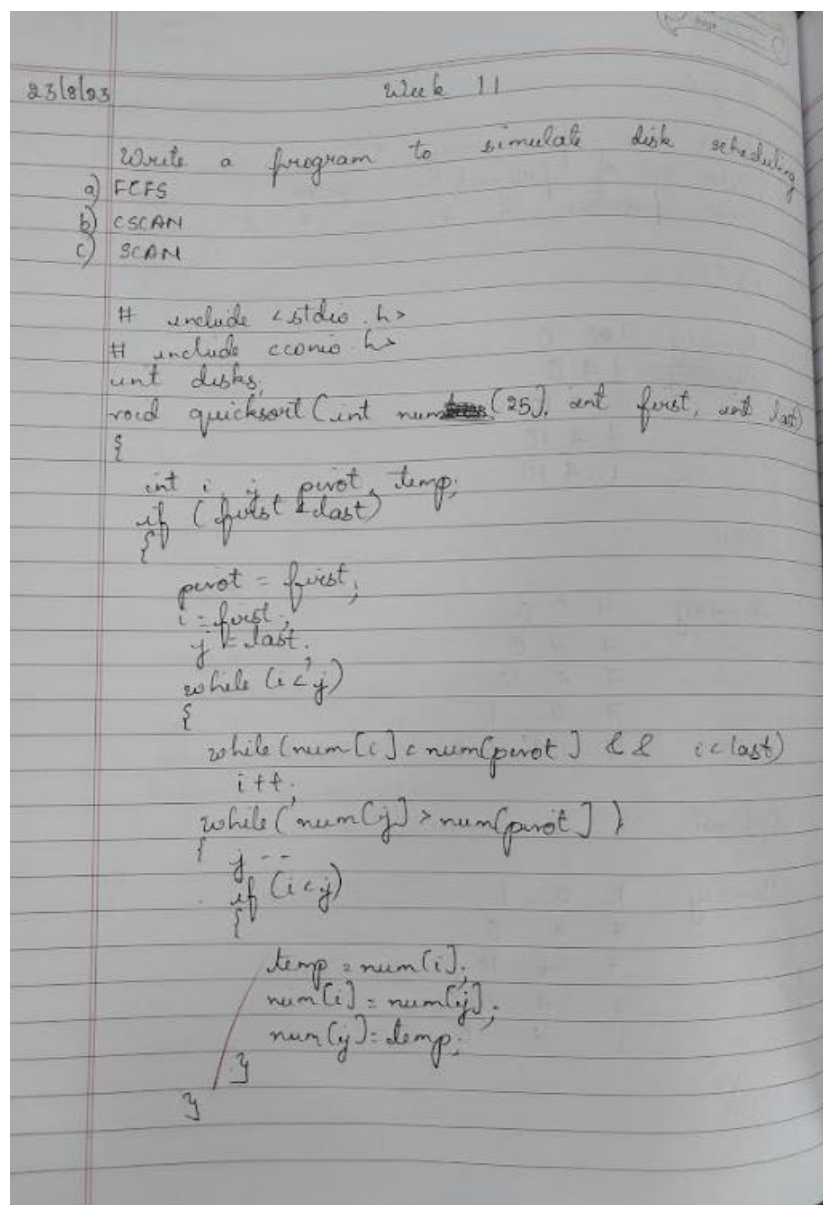 23/8/23 Week 11
Write a program to simulate disk scheduling
a) FCFS
b) CSCAN
c) SCAN
# include <stdio.h>
# include <conio.h>
int disks;
void quicksort (int num[25], int first, int last)
{
int i, j, pivot, temp;
if (first < last)
{
pivot = first;
i = first;
j = last;
while (i < j)
{
while (num[i] < num[pivot] && i < last)
i++;
while (num[j] > num[pivot])
{
j--
if (i < j)
{
temp = num[i];
num[i] = num[j];
num[j] = temp;
}
}